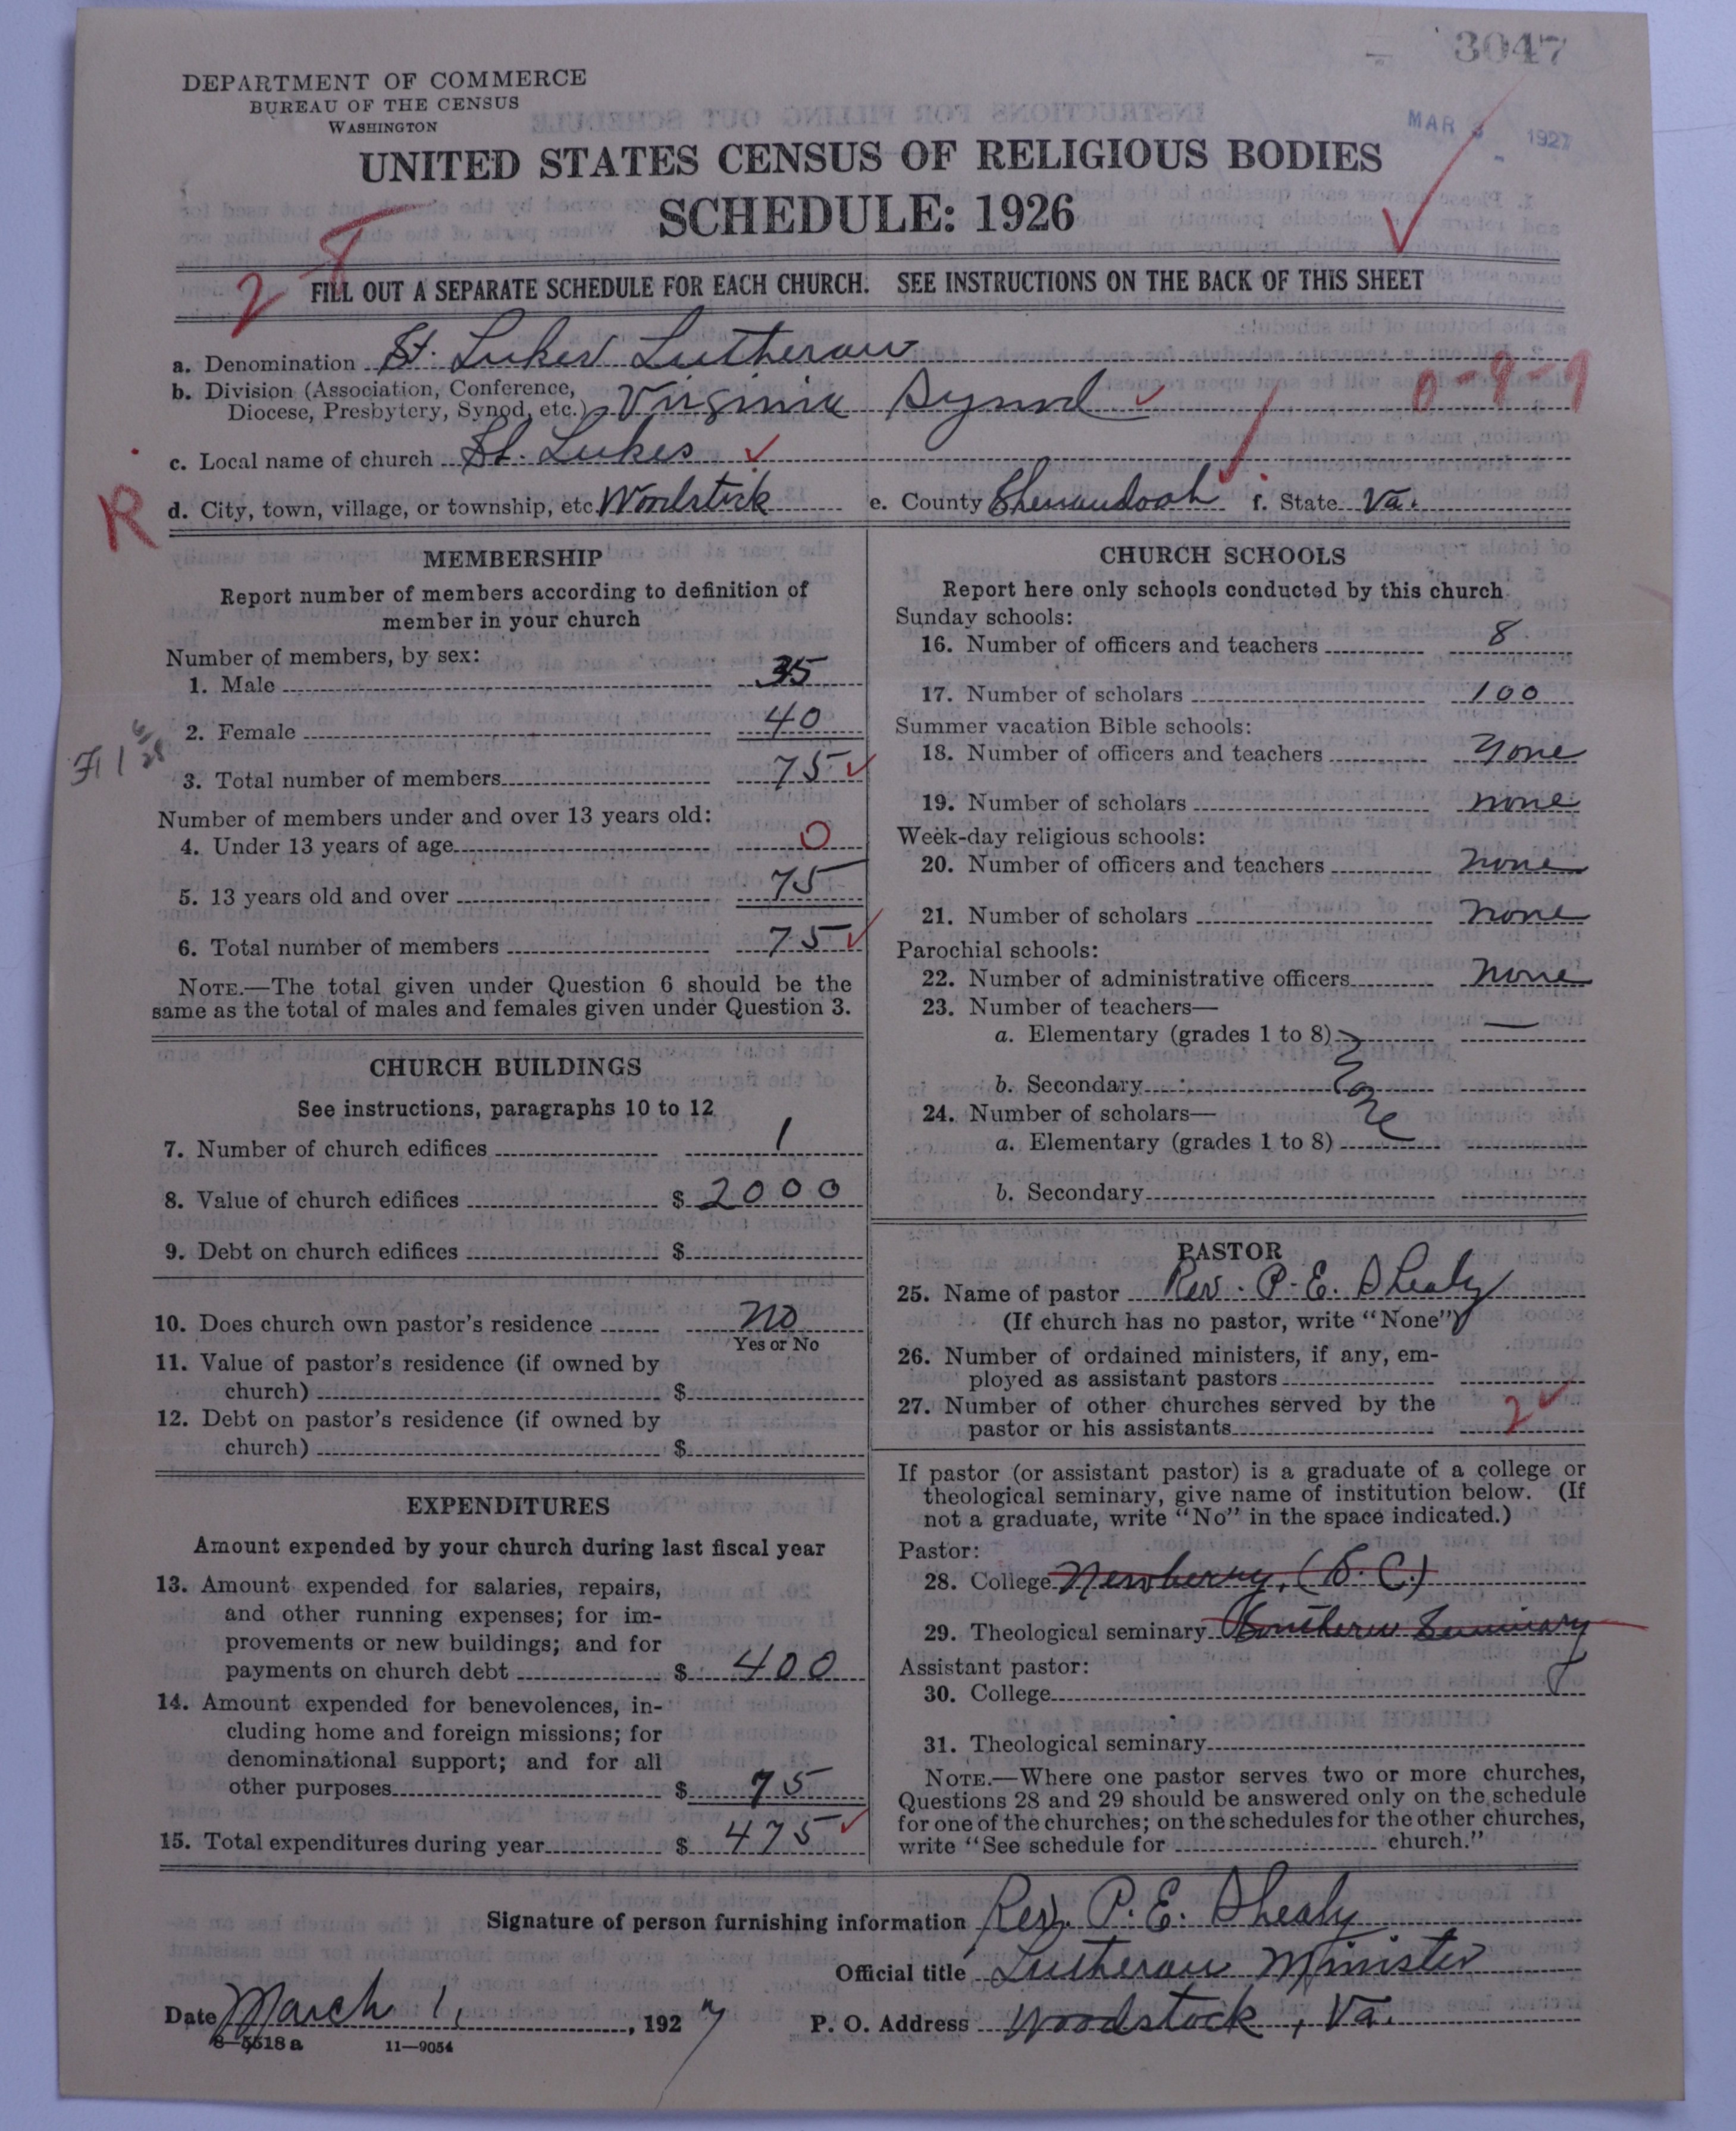 3047
DEPARTMENT OF COMMERCE
BUREAU OF THE CENSUS
WASHINGTON
MAR 3 1927
UNITED STATES CENSUS OF RELIGIOUS BODIES
SCHEDULE: 1926
2 8
FILL OUT A SEPARATE SCHEDULE FOR EACH CHURCH. SEE INSTRUCTIONS ON THE BACK OF THIS SHEET
a. Denomination St. Lukes Lutheran
b. Division (Association, Conference,
Diocese, Presbytery, Synod, etc.) Virginia Synod 0-9-9
c. Local name of church St. Lukes
R
d. City, town, village, or township, etc. Woodstock e. County Shenandoah f. State Va.
MEMBERSHIP
Report number of members according to definition of
member in your church
Number of members, by sex:
1. Male 35
2. Female 40
3. Total number of members 75
Number of members under and over 13 years old:
4. Under 13 years of age 0
5. 13 years old and over 75
6. Total number of members 75
NOTE.—The total given under Question 6 should be the
same as the total of males and females given under Question 3.
CHURCH BUILDINGS
See instructions, paragraphs 10 to 12
7. Number of church edifices 1
8. Value of church edifices $ 2000
9. Debt on church edifices $
10. Does church own pastor's residence no
Yes or No
11. Value of pastor's residence (if owned by
church) $
12. Debt on pastor's residence (if owned by
church) $
EXPENDITURES
Amount expended by your church during last fiscal year
13. Amount expended for salaries, repairs,
and other running expenses; for im-
provements or new buildings; and for
payments on church debt $ 400
14. Amount expended for benevolences, in-
cluding home and foreign missions; for
denominational support; and for all
other purposes $ 75
15. Total expenditures during year $ 475
CHURCH SCHOOLS
Report here only schools conducted by this church
Sunday schools:
16. Number of officers and teachers 8
17. Number of scholars 100
Summer vacation Bible schools:
18. Number of officers and teachers none
19. Number of scholars none
Week-day religious schools:
20. Number of officers and teachers none
21. Number of scholars none
Parochial schools:
22. Number of administrative officers none
23. Number of teachers—
a. Elementary (grades 1 to 8) None
b. Secondary
24. Number of scholars—
a. Elementary (grades 1 to 8)
b. Secondary
PASTOR
25. Name of pastor Rev. P. E. Shealy
(If church has no pastor, write "None")
26. Number of ordained ministers, if any, em-
ployed as assistant pastors
27. Number of other churches served by the
pastor or his assistants 2
If pastor (or assistant pastor) is a graduate of a college or
theological seminary, give name of institution below. (If
not a graduate, write "No" in the space indicated.)
Pastor:
28. College Newberry, (S. C.)
29. Theological seminary Southern Seminary
Assistant pastor:
30. College
31. Theological seminary
NOTE.—Where one pastor serves two or more churches,
Questions 28 and 29 should be answered only on the schedule
for one of the churches; on the schedules for the other churches,
write "See schedule for church."
Signature of person furnishing information Rev. P. E. Shealy
Official title Lutheran Minister
Date March 1, , 1927 P. O. Address Woodstock, Va.
8—5518 a 11—9054